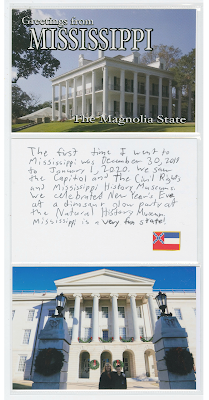 Greetings from
MISSISSIPPI
The Magnolia State
The first time I went to
Mississippi was December 30, 2019
to January 1, 2020. We saw
the Capitol and The Civil Rights
and Mississippi History Museums.
We celebrated New Year's Eve
at a dinosaur glow party at
the Natural History Museum.
Mississippi is a very fun state!